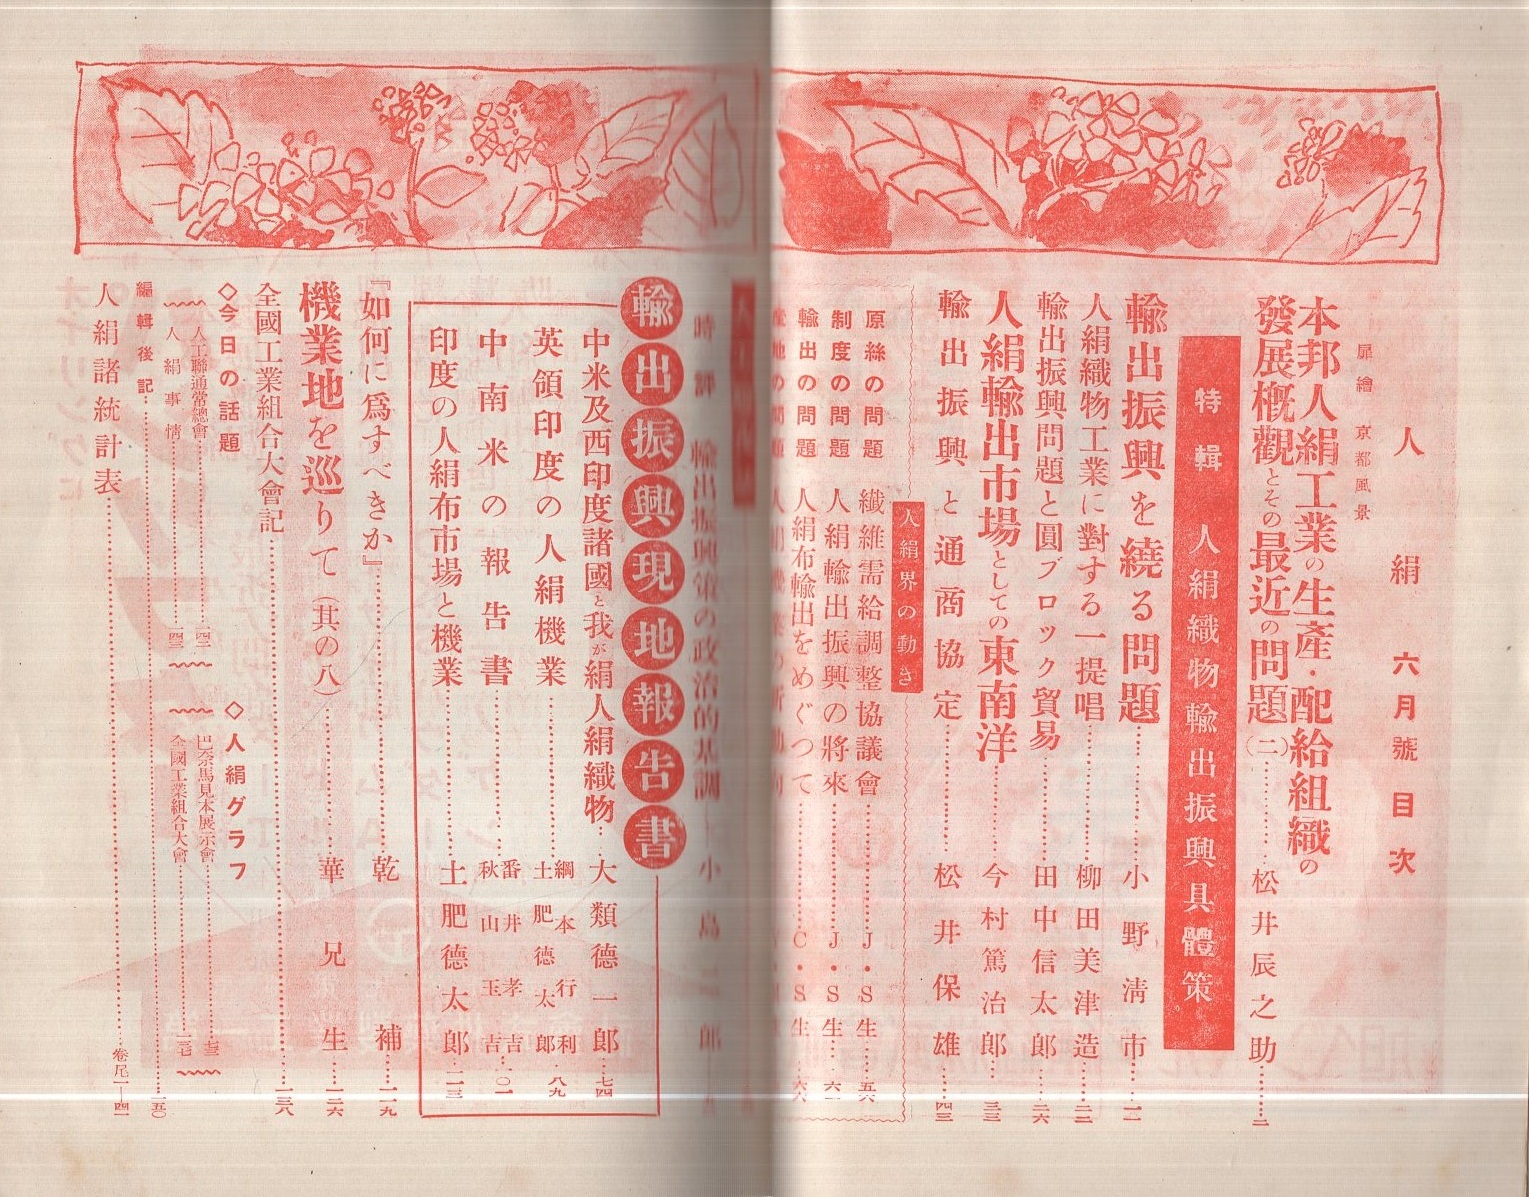 人絹 六月號目次
扉繪 京都風景
本邦人絹工業の生產・配給組織の
發展槪觀とその最近の問題(二)……松井辰之助……二
特輯 人絹織物輸出振興具體策
輸出振興を繞る問題……小野淸市……一一
人絹織物工業に對する一提唱……柳田美津造……二二
輸出振興問題と圓ブロック貿易……田中信太郎……二六
人絹輸出市場としての東南洋……今村篤治郎……三三
輸出振興と通商協定……松井保雄……四三
人絹界の動き
原絲の問題 纖維需給調整協議會……J・S生……五六
制度の問題 人絹輸出振興の將來……J・S生……六一
輸出の問題 人絹布輸出をめぐつて……C・S生……六六
時評 輸出振興策の政治的基調―小島二郎
輸出振興現地報告書
中米及西印度諸國と我が絹人絹織物…大類德一郎…七四
英領印度の人絹機業……綱本行利 土肥德太郎…八九
中南米の報告書……番井孝吉 秋山玉吉…一〇一
印度の人絹布市場と機業……土肥德太郎…一一三
『如何に爲すべきか』……乾補……一一九
機業地を巡りて(其の八)……華兄生……一二六
全國工業組合大會記……一三八
◇今日の話題
人工聯通常總會……四二
人絹事情……四三
◇人絹グラフ
巴奈馬見本展示會……七三
全國工業組合大會……三七
編輯後記……一五〇
人絹諸統計表……卷尾一―四一